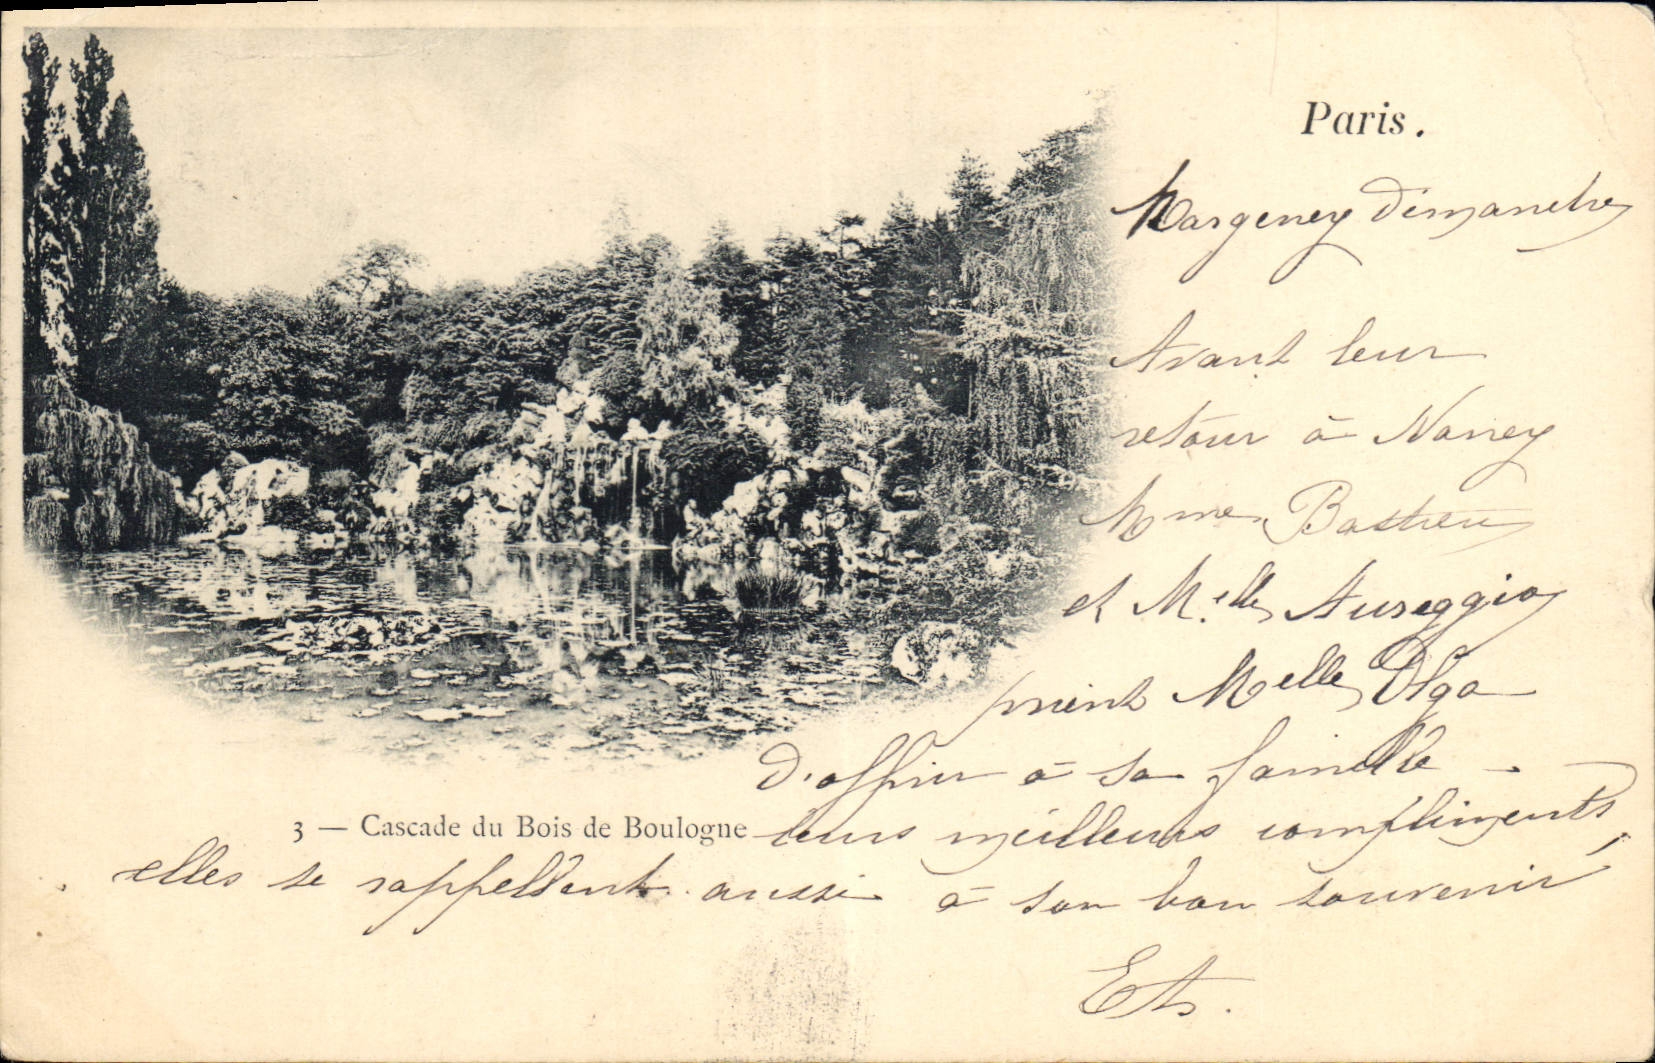 Paris.
Margency Dimanche
Avant leur
retour à Nancy
Mmes Bastien
et M.elle Auseggio
prient Melle Olga
d'offrir à sa famille
3 — Cascade du Bois de Boulogne
leurs meilleurs compliments,
elles se rappellent aussi à son bon souvenir